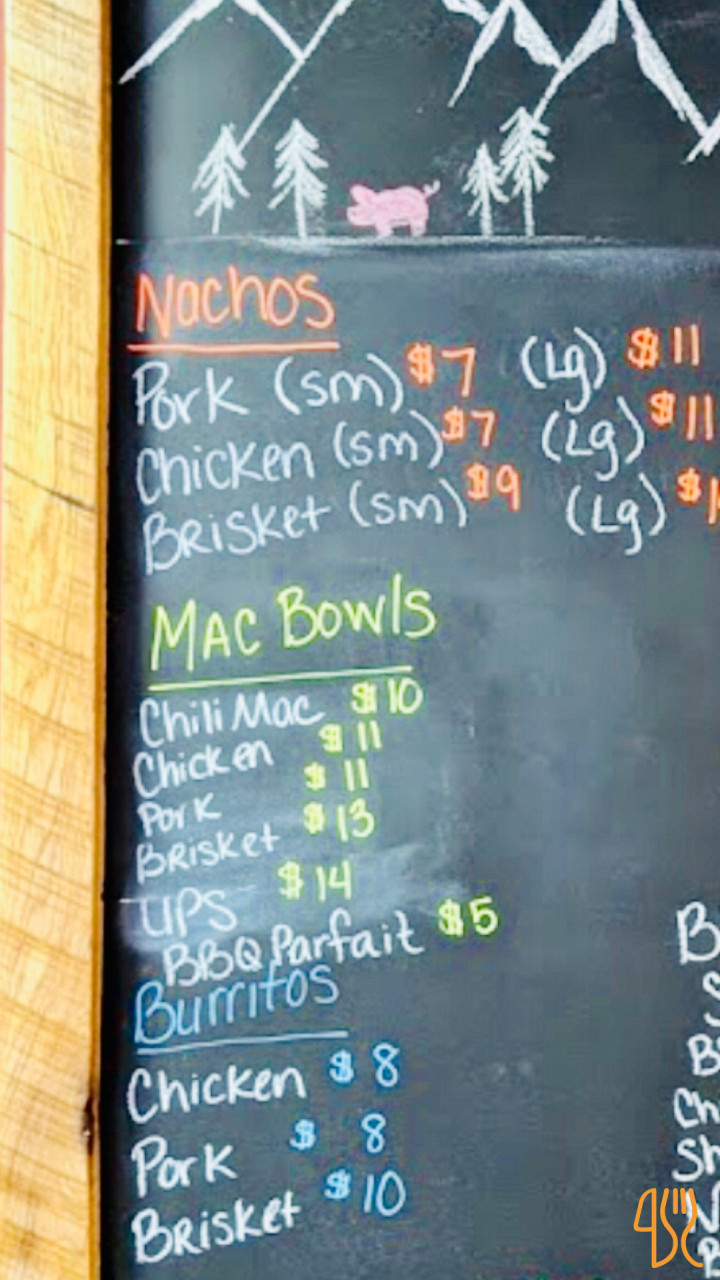 Nachos
Pork (sm) $7 (Lg) $11
Chicken (sm) $7 (Lg) $11
Brisket (sm) $9 (Lg)
Mac Bowls
Chili Mac $10
Chicken $11
Pork $11
Brisket $13
UPS $14
BBQ Parfait $5
Burritos
Chicken $8
Pork $8
Brisket $10